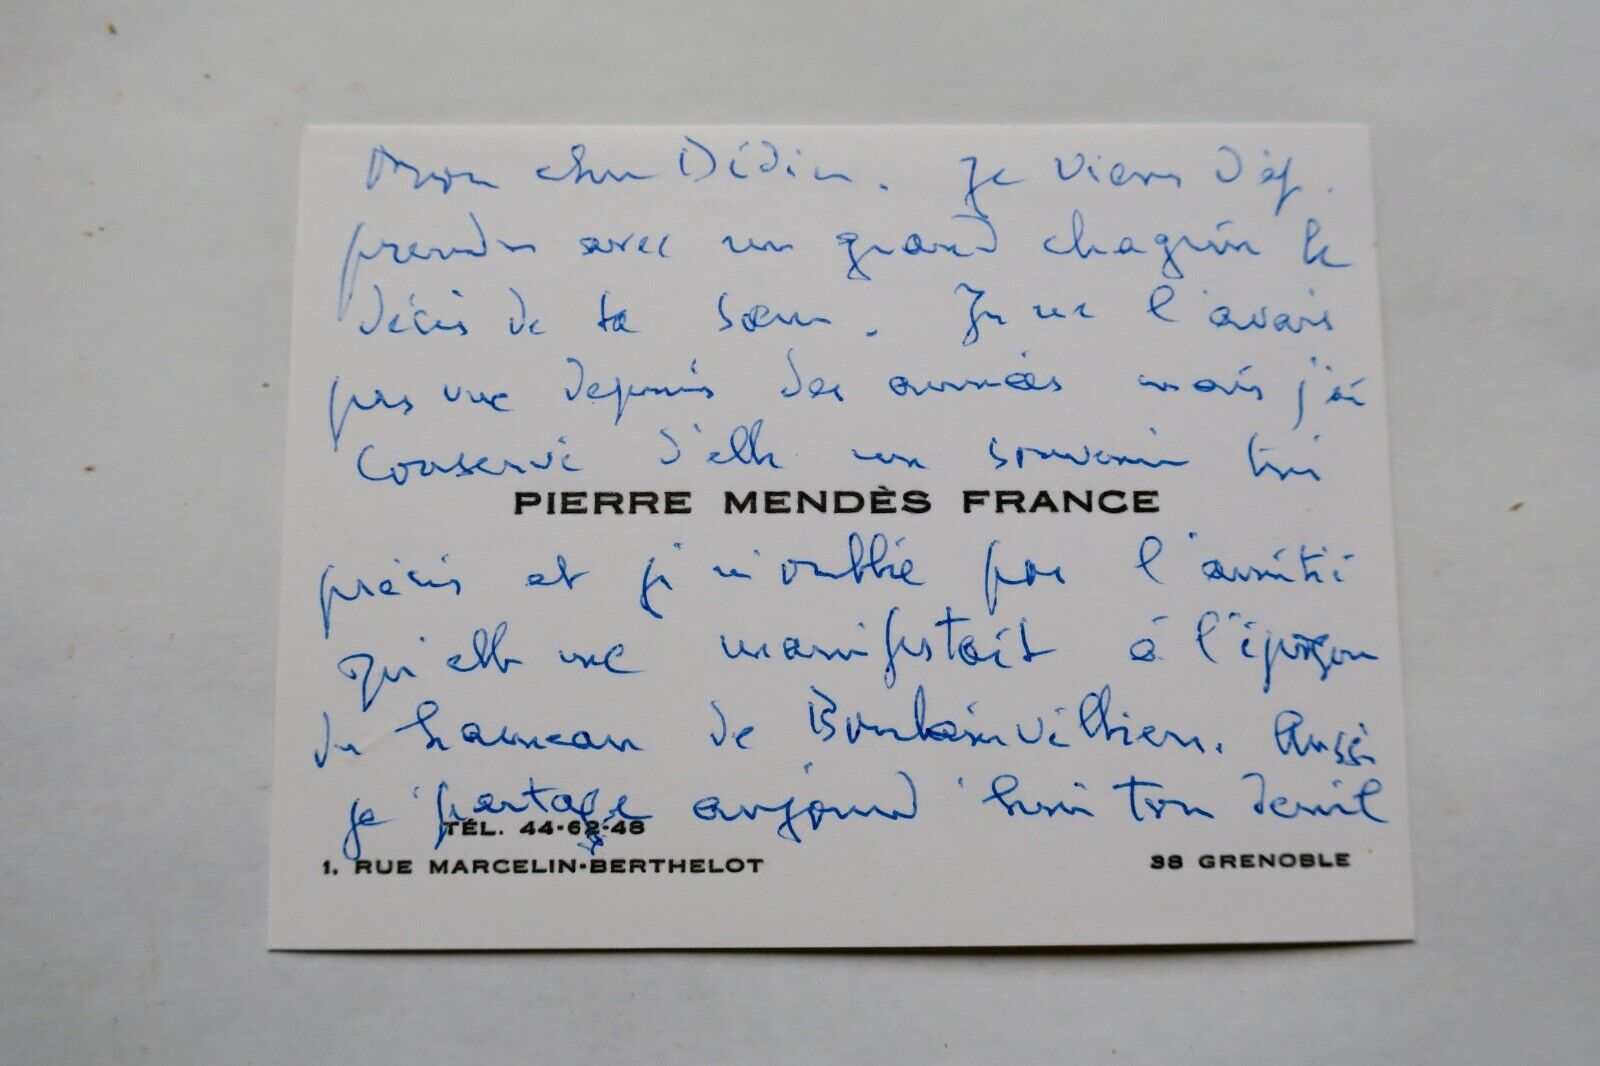 Mon cher Dédieu. Je viens d'ap-
prendre avec un grand chagrin le
décès de ta sœur. Je ne l'avais
pas vue depuis des années mais j'ai
conservé d'elle un souvenir très
PIERRE MENDÈS FRANCE
précis et je n'oublie pas l'amitié
qu'elle me manifestait à l'époque
du hameau de Boulainvilliers. Aussi
je partage aujourd'hui ton deuil
TÉL. 44-62-48
1, RUE MARCELIN-BERTHELOT
38 GRENOBLE